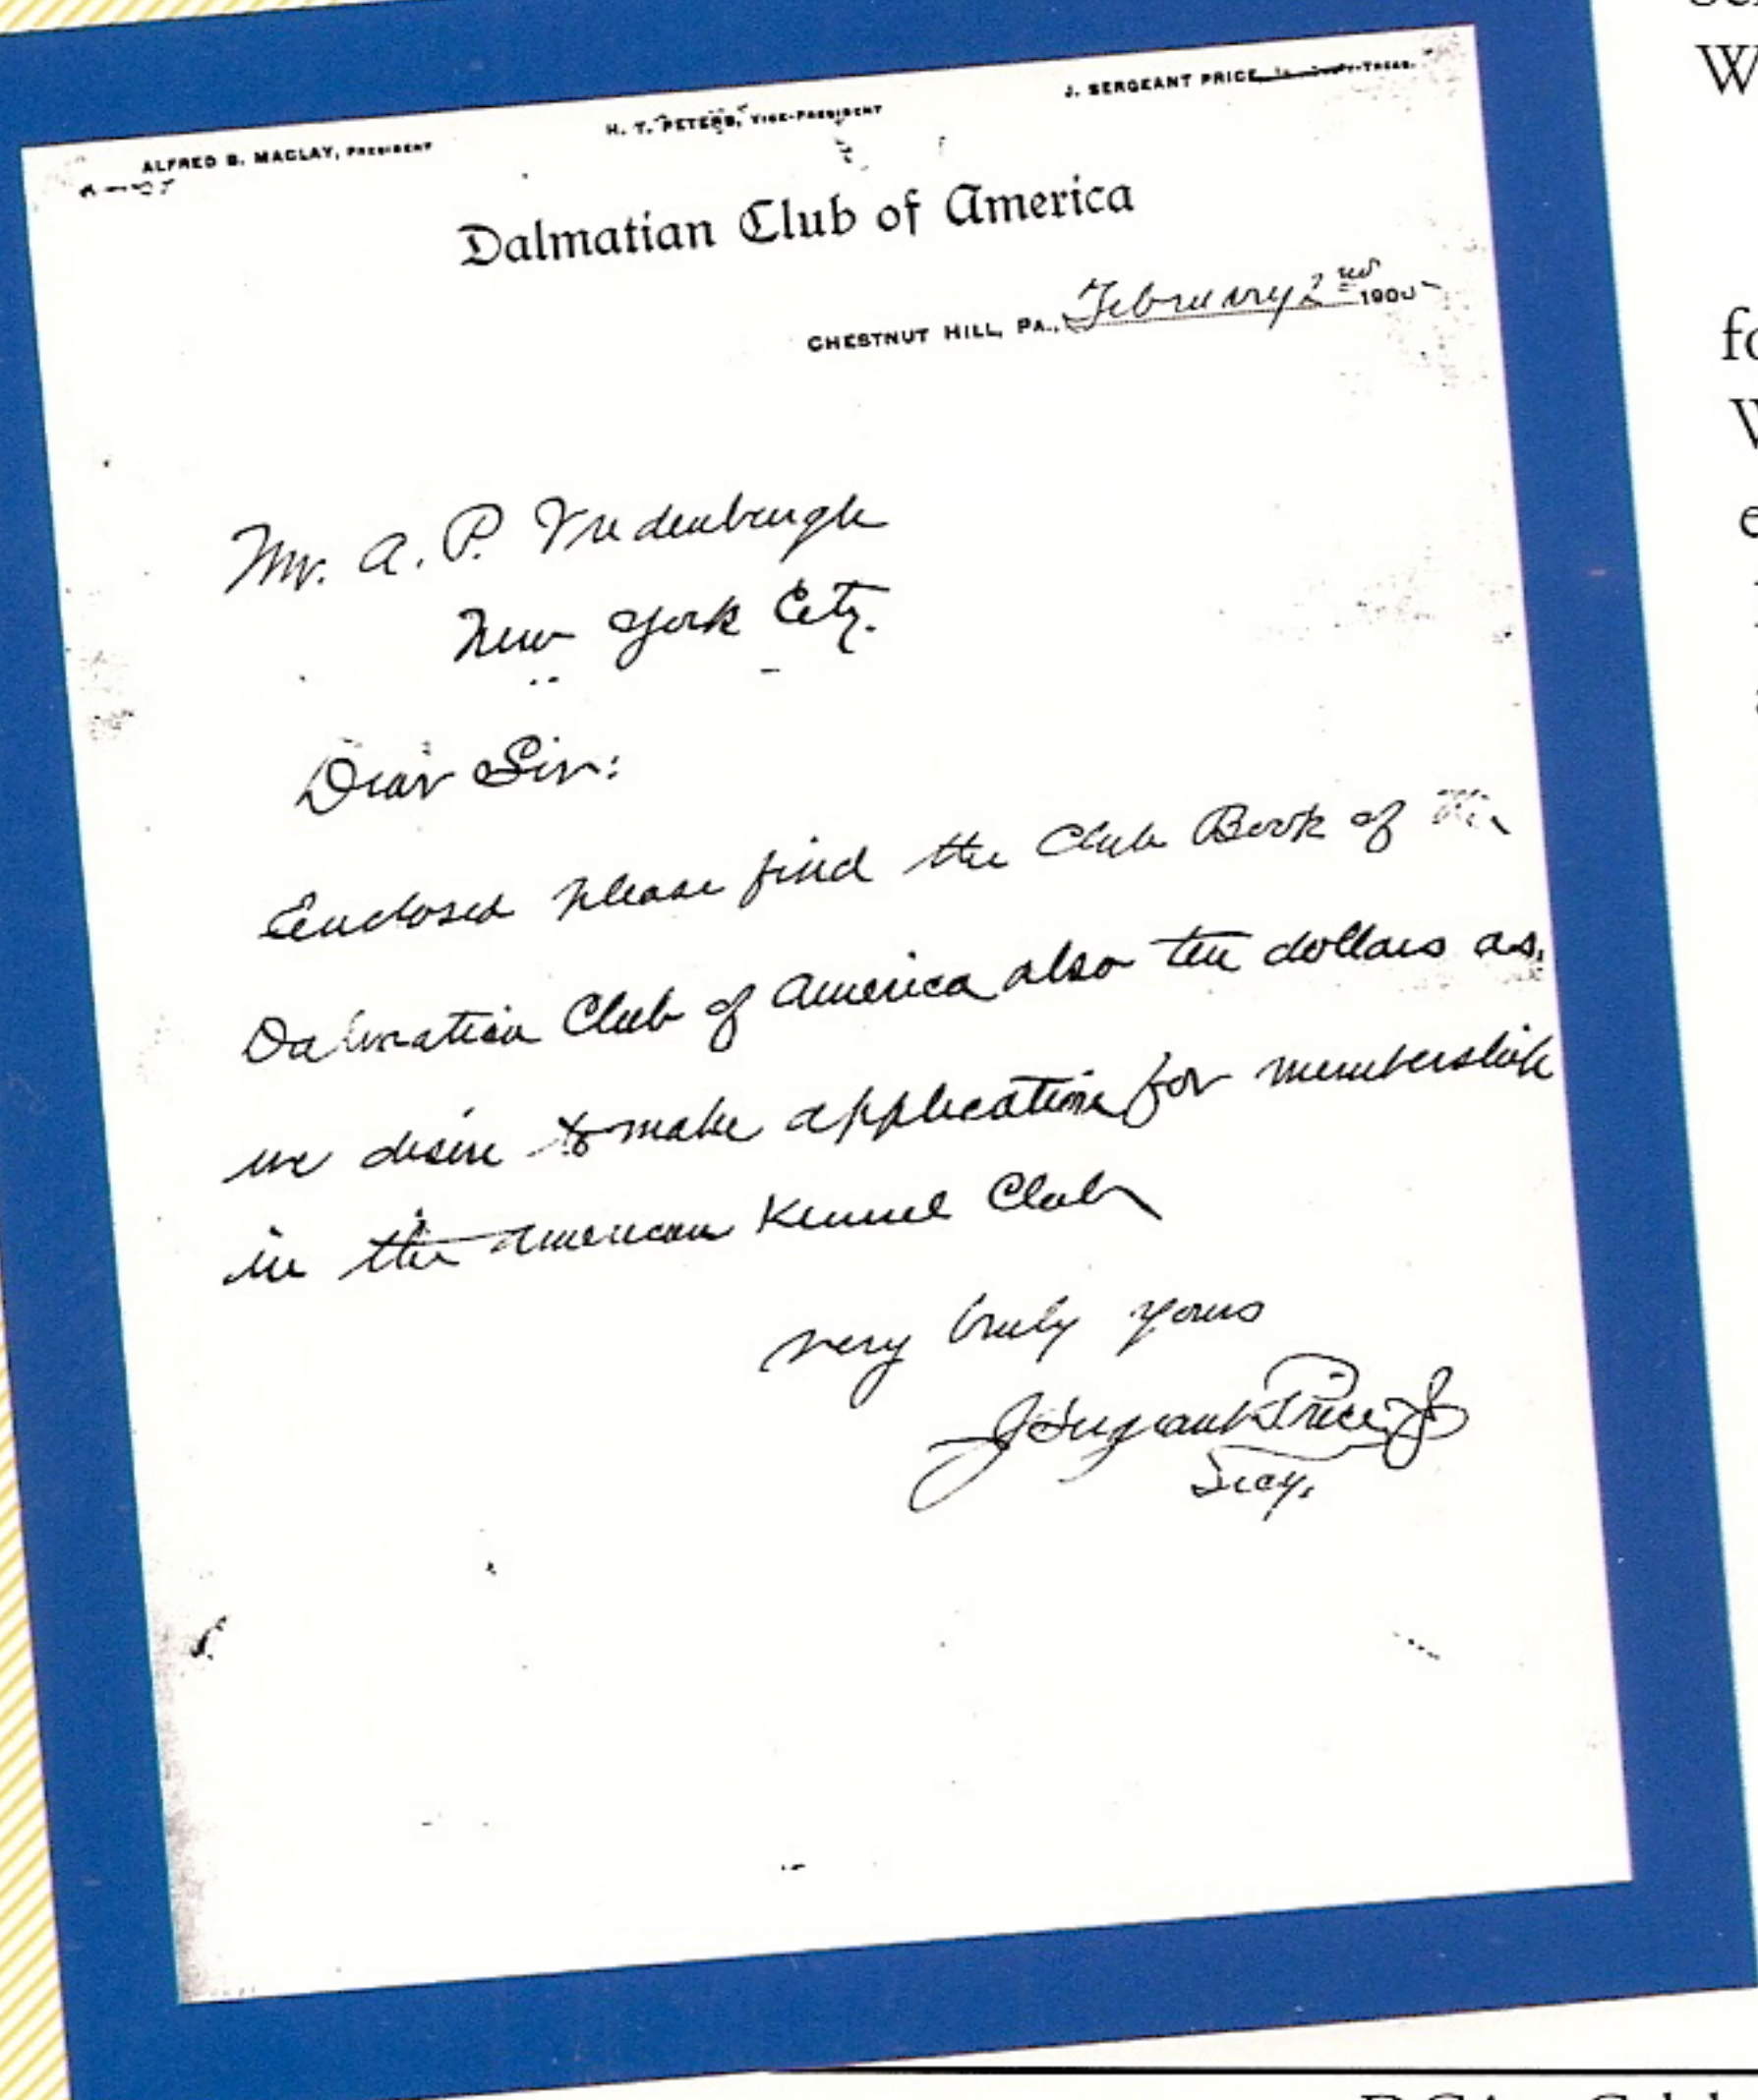 ALFRED B. MACLAY, PRESIDENT
H. T. PETERS, VICE-PRESIDENT
J. SERGEANT PRICE,
Dalmatian Club of America
CHESTNUT HILL, PA., February 2nd 190
Mr. A. P. Vredenburgh
New York City.
Dear Sir:
Enclosed please find the Club Book of the
Dalmatian Club of America also ten dollars as
we desire to make application for membership
in the American Kennel Club
Very truly yours
J Sergeant Price Jr
Secy.
W
fo
W
e